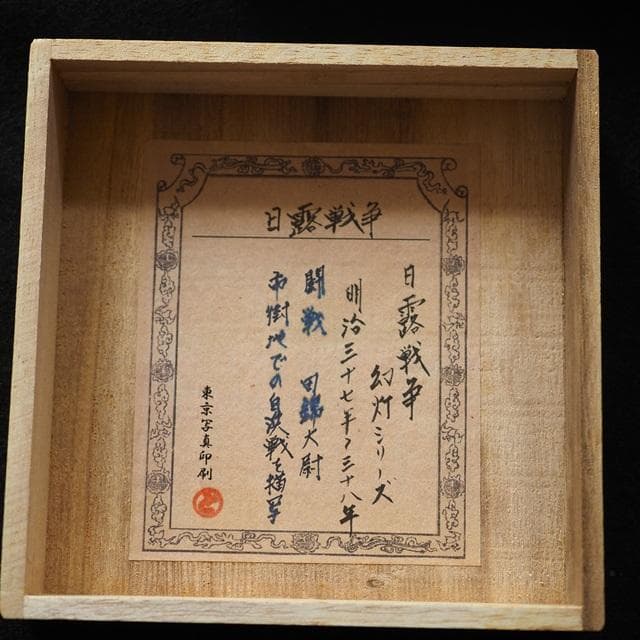 日露戦争
日露戦争
幻灯シリーズ
明治三十七年〜三十八年
闘戦 田 大尉
市街地での白決戦を描写
東京写真印刷